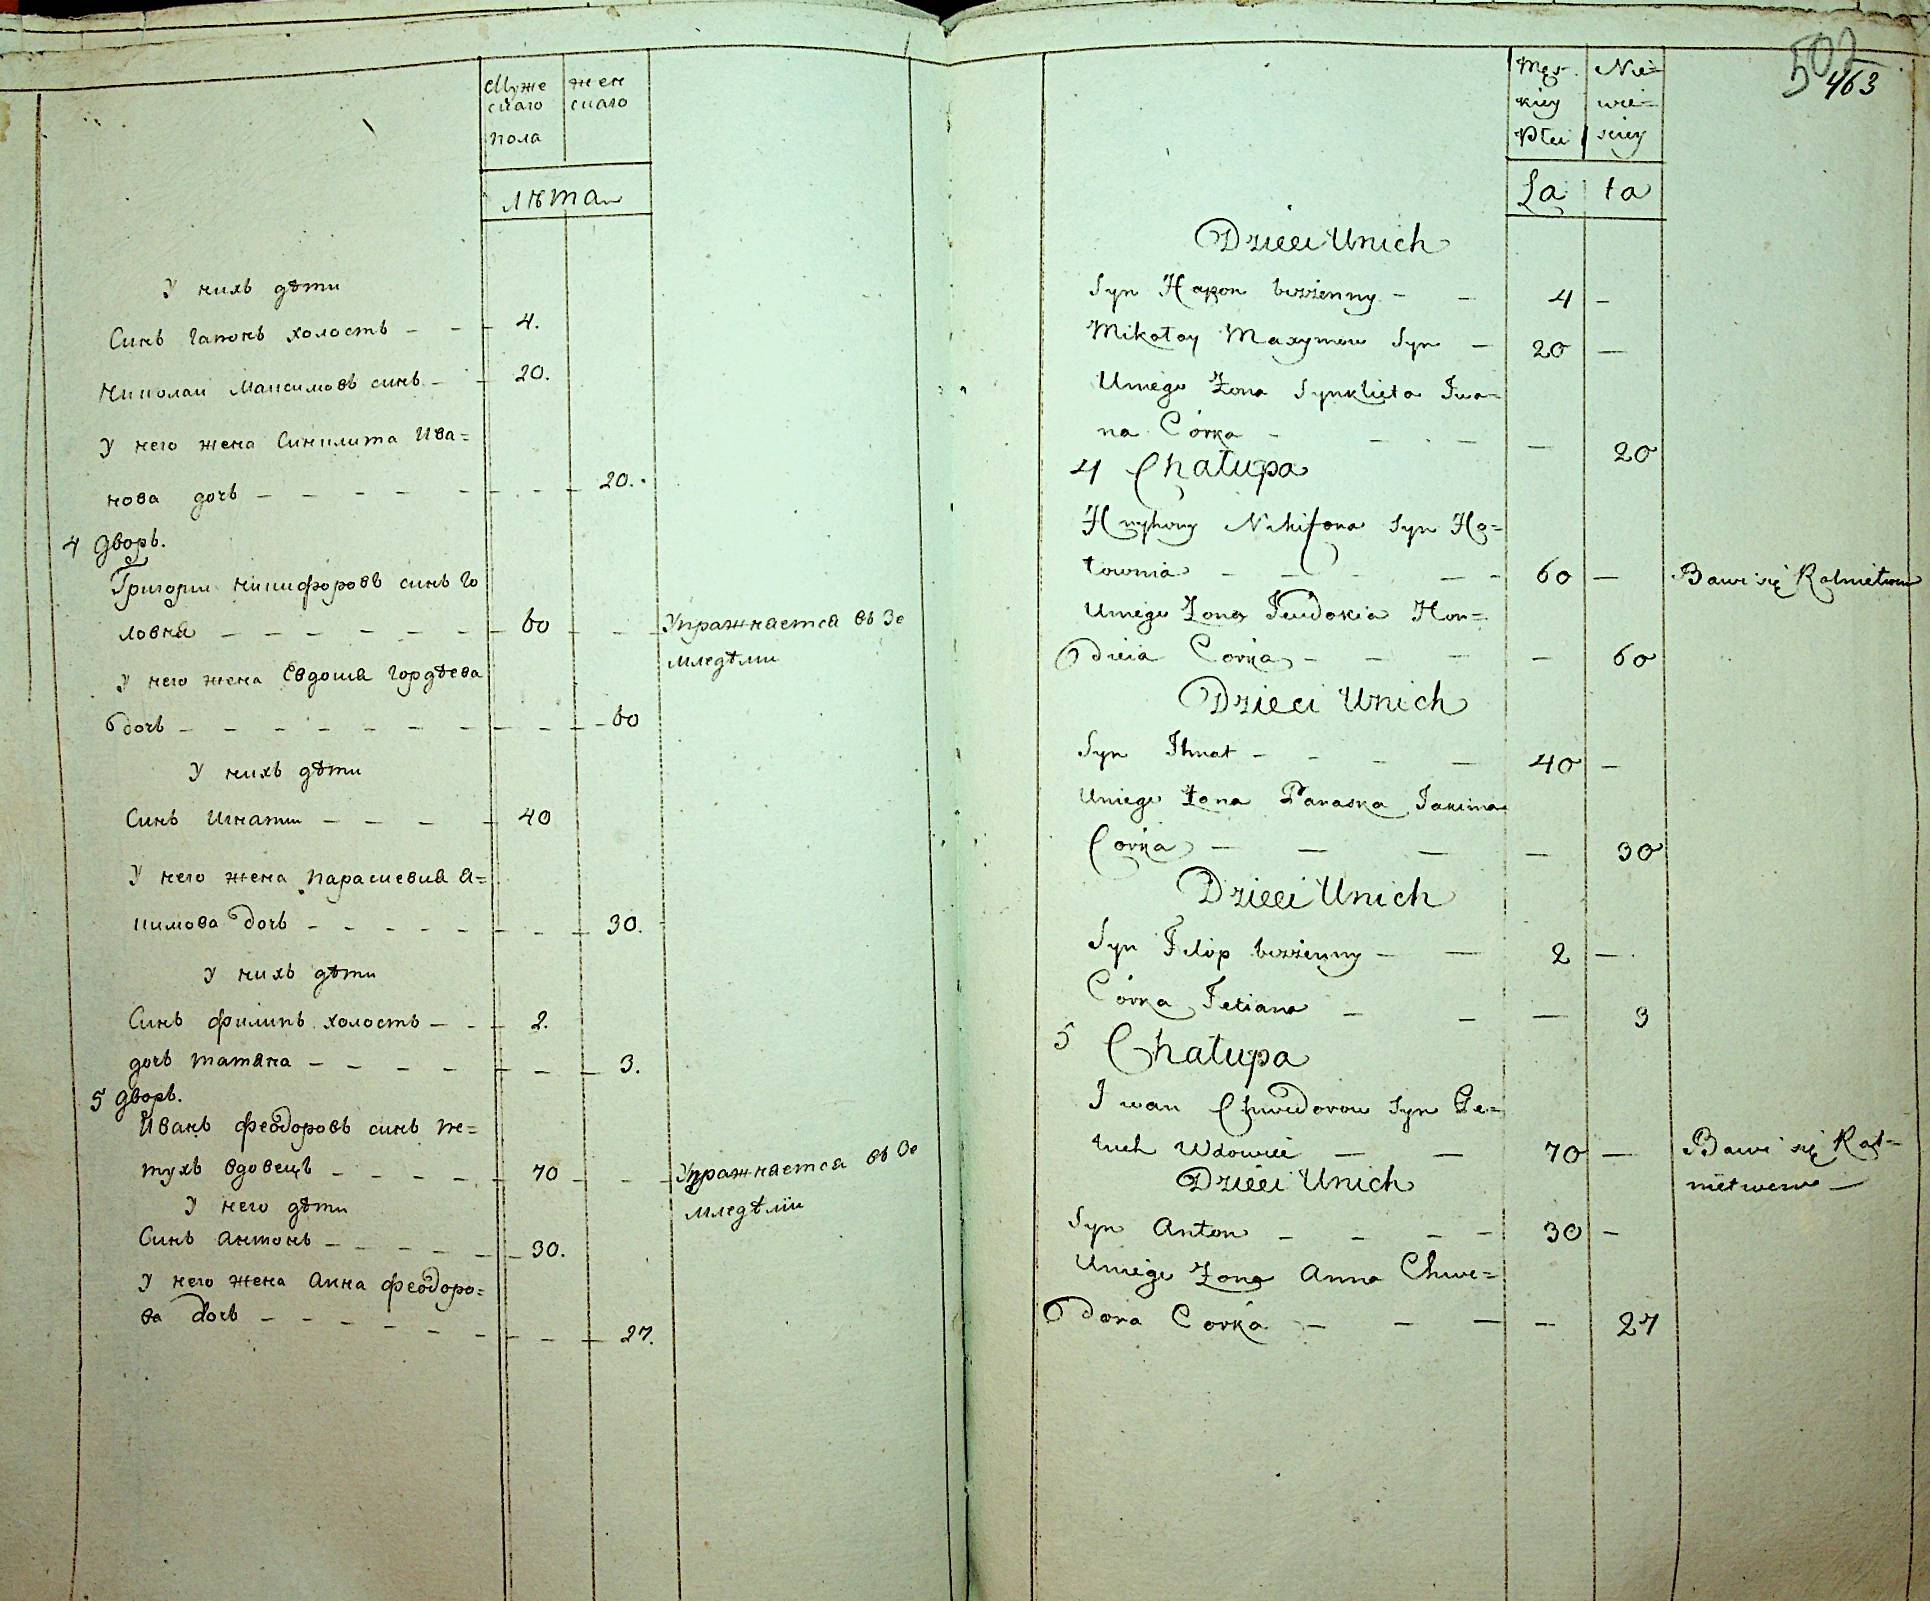 Муже
скаго
пола
жен
скаго
лѣта
У нихъ дѣти
Синъ Гапонъ холостъ – – – 4.
Николаи Максимовъ синъ – – 20.
У него жена Синклита Ива=
нова дочь – – – – – – – – 20.
4 дворъ.
Григории Никифоровъ синъ Го
ловня – – – – – – – 60 – – – Упражняется въ Зе
мледѣлии
У него жена Евдокия Гордѣева
дочь – – – – – – – – – – 60
У нихъ дѣти
Синъ Игнатии – – – – 40
У него жена Параскевия Я=
кимова дочь – – – – – – – – 30.
У нихъ дѣти
Синъ Филипъ холостъ – – – 2.
дочь Татяна – – – – – – – 3.
5 дворъ.
Иванъ Феодоровъ синъ Пе=
тухъ вдовецъ – – – – – 70 – – – Упражняется въ Зе
мледѣлїи
У него дѣти
Синъ Антонъ – – – – – – 30.
У него жена Анна Феодоро=
ва дочь – – – – – – – – – 27.
502
463
Męs-
kiey
Płci
Nie=
wie=
sciey
La ta
Dzieci Unich
Syn Hapon bezżenny – – 4 –
Mikołay Maxymow Syn – 20 –
Uniego Żona Synklieta Iwa=
na Córka – – – – – 20
4 Chałupa
Hryhory Nikifora Syn Ho=
łownia – – – – – 60 – Bawi się Rolnictwem
Uniego Żona Jeudokia Hor=
dieia Córka – – – – 60
Dzieci Unich
Syn Ihnat – – – – 40 –
Uniego Żona Paraska Jakima
Córka – – – – 30
Dzieci Unich
Syn Filip bezżenny – – 2 –
Córka Tetiana – – – 3
5 Chałupa
Iwan Chwedorow Syn Pe=
tuch Wdowiec – – 70 – Bawi się Rol=
nictwem –
Dzieci Unich
Syn Anton – – – – 30 –
Uniego Żona Anna Chwe=
dora Córka – – – – 27